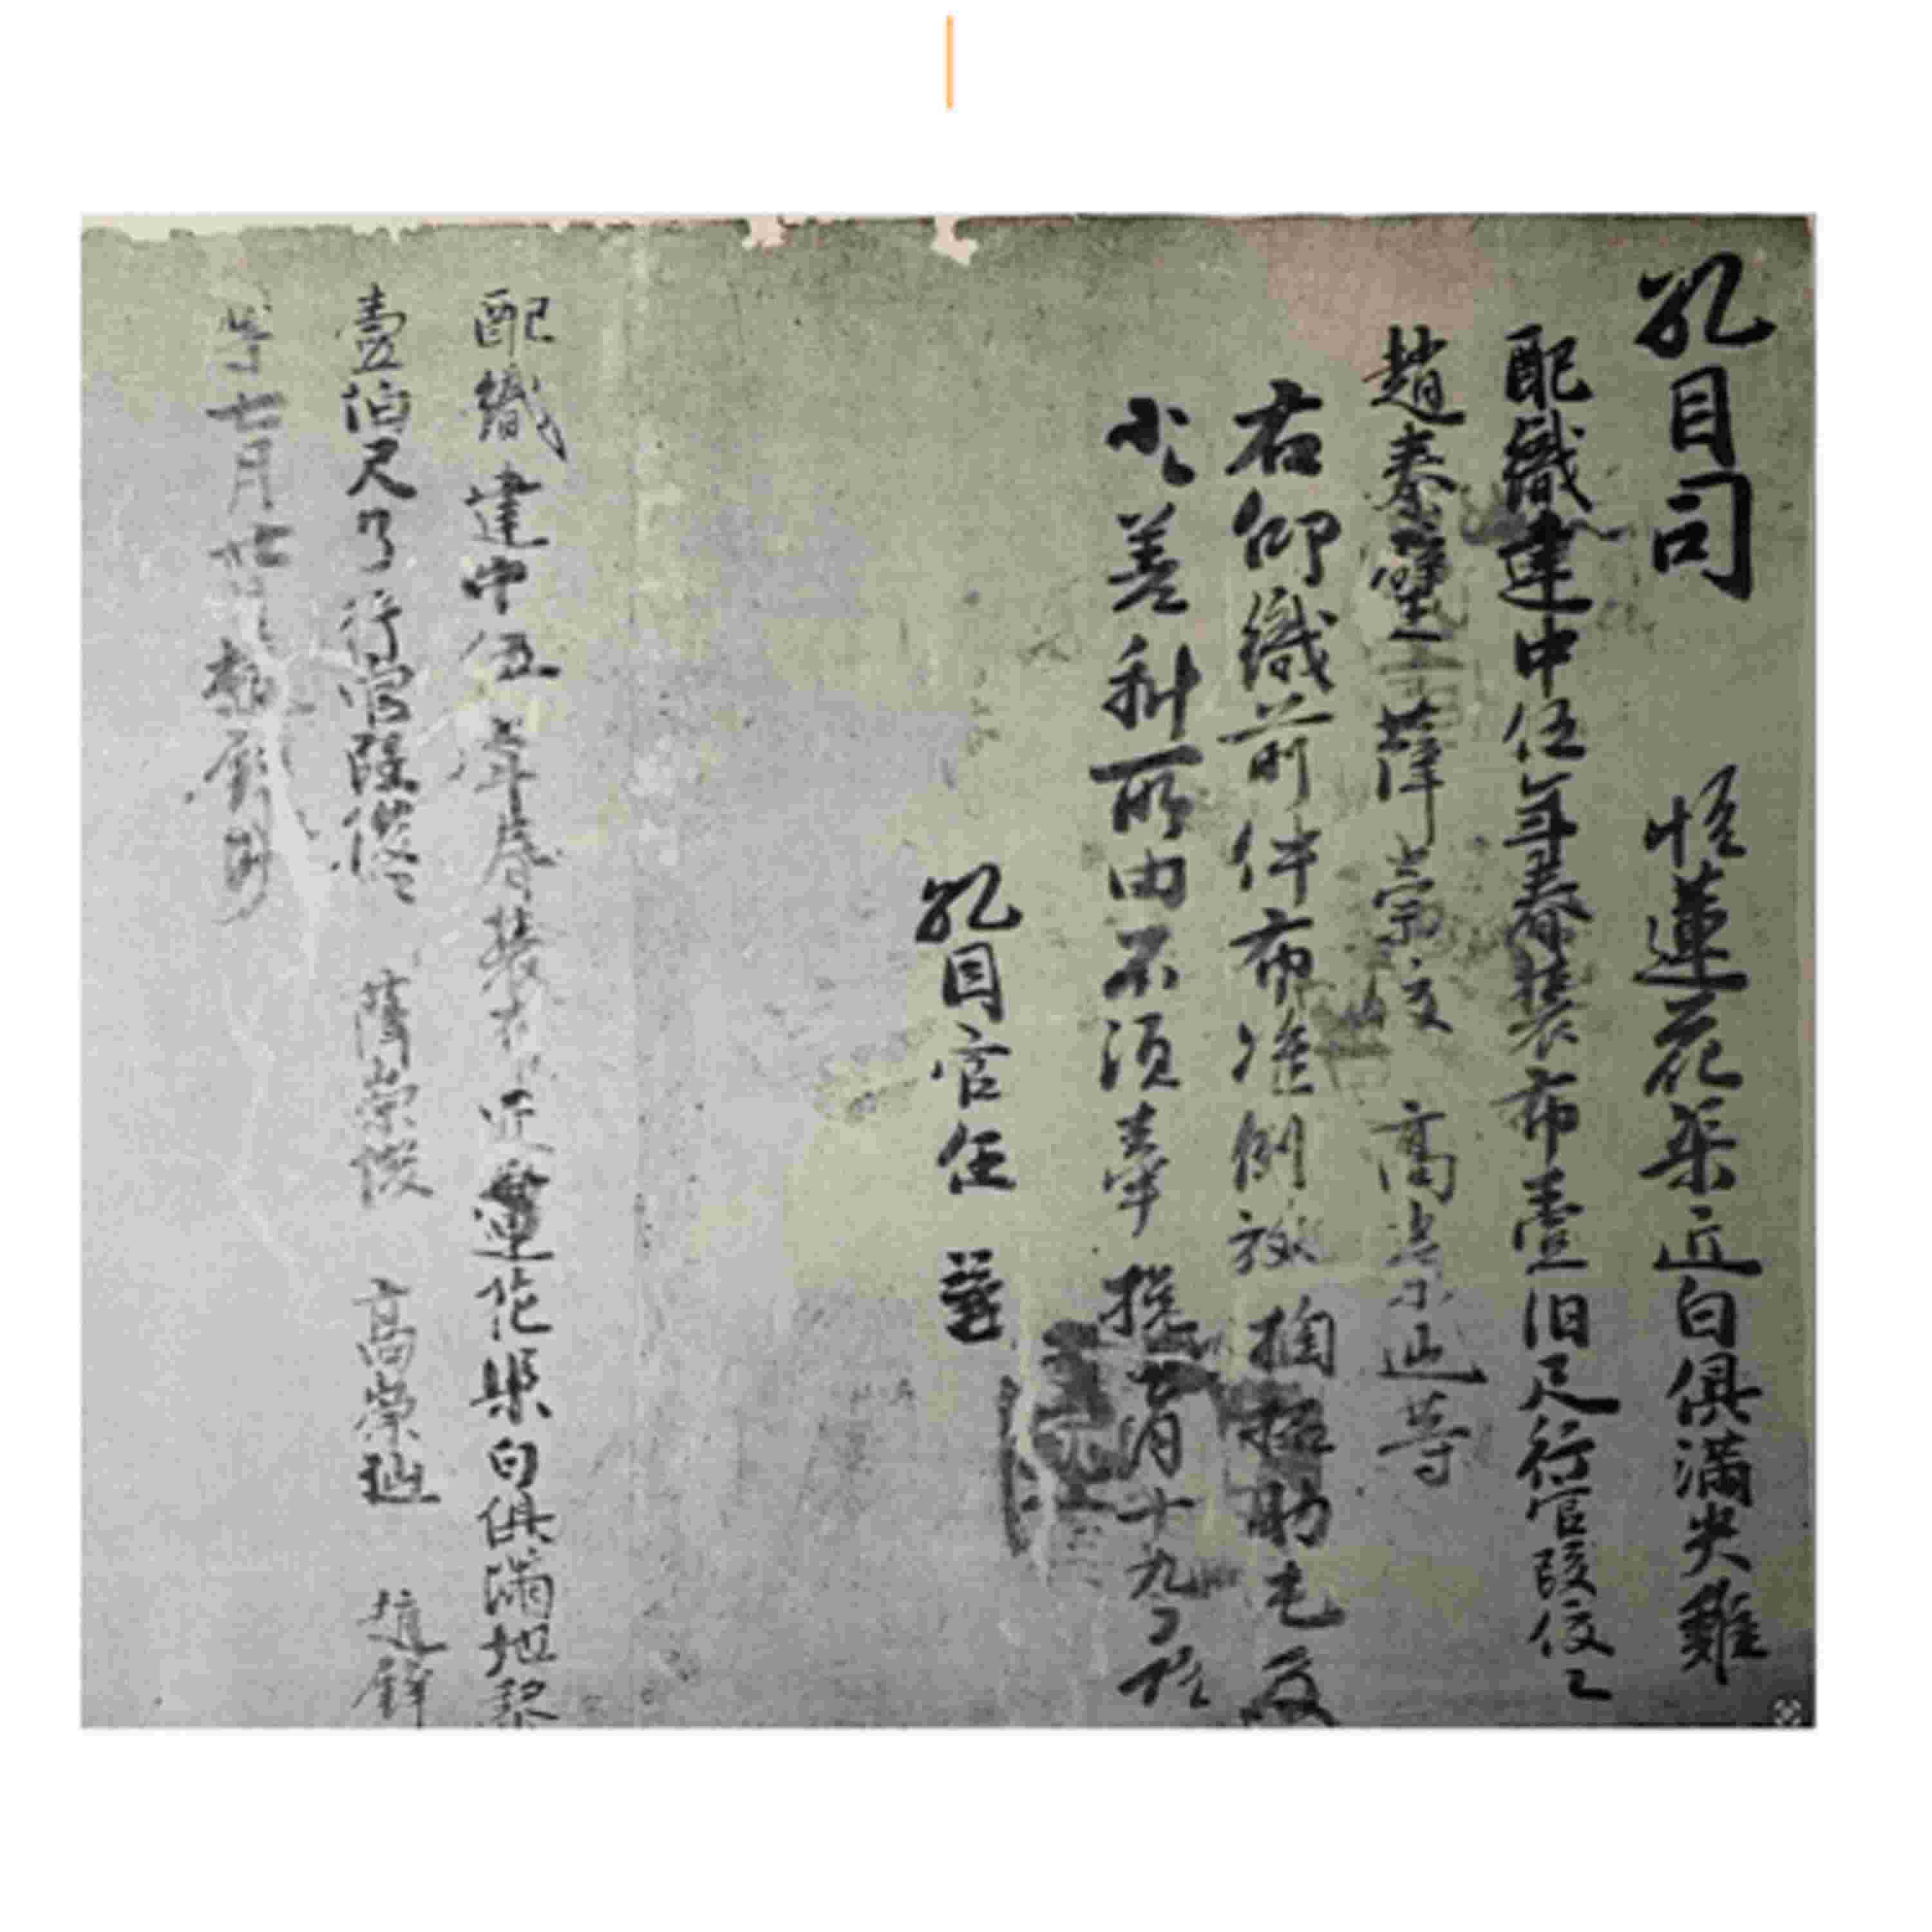 孔目司 帖蓮花渠匠白俱滿失雞
配織建中伍年春裝布壹佰尺行官段俊俊
趙秦璧 薛崇俊 高崇迪等
右仰織前件布准例放掏拓助屯及
小小差科所由不須牽挽七月十九日帖
孔目官任 㽵
配織建中伍年春裝布匠蓮花渠白俱滿地黎
壹佰尺了行官段俊俊 薛崇俊 高崇迪 趙
等七月廿日趙